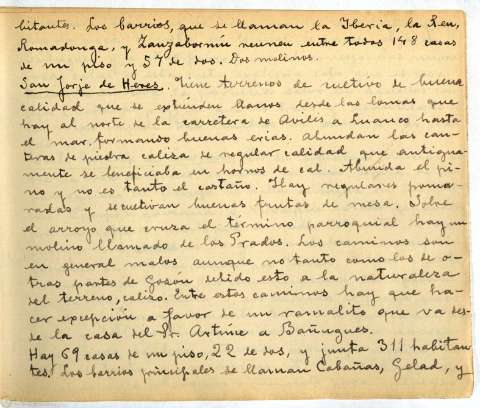 bitantes. Los barrios, que se llaman la Iberia, la Ren,
Romadonga, y Zanzabornín reunen entre todos 148 casas
de un piso y 57 de dos. Dos molinos.
San Jorje de Heres. Tiene terrenos de cultivo de buena
calidad que se extienden llanos desde las lomas que
hay al norte de la carretera de Aviles a Luanco hasta
el mar, formando buenas erias. Abundan las can-
teras de piedra caliza de regular calidad que antigua-
mente se beneficiaba en hornos de cal. Abunda el pi-
no y no es tanto el castaño. Hay regulares poma-
radas y se cultivan buenas frutas de mesa. Sobre
el arroyo que cruza el término parroquial hay un
molino llamado de los Prados. Los caminos son
en general malos aunque no tanto como los de o-
tras partes de Gozón debido esto a la naturaleza
del terreno, calizo. Entre estos caminos hay que ha-
cer excepción a favor de un ramalito que va des-
de la casa del Sr. Artime a Bañugues.
Hay 69 casas de un piso, 22 de dos, y junta 311 habitan
tes. Los barrios principales se llaman Cabañas, Gelad, y